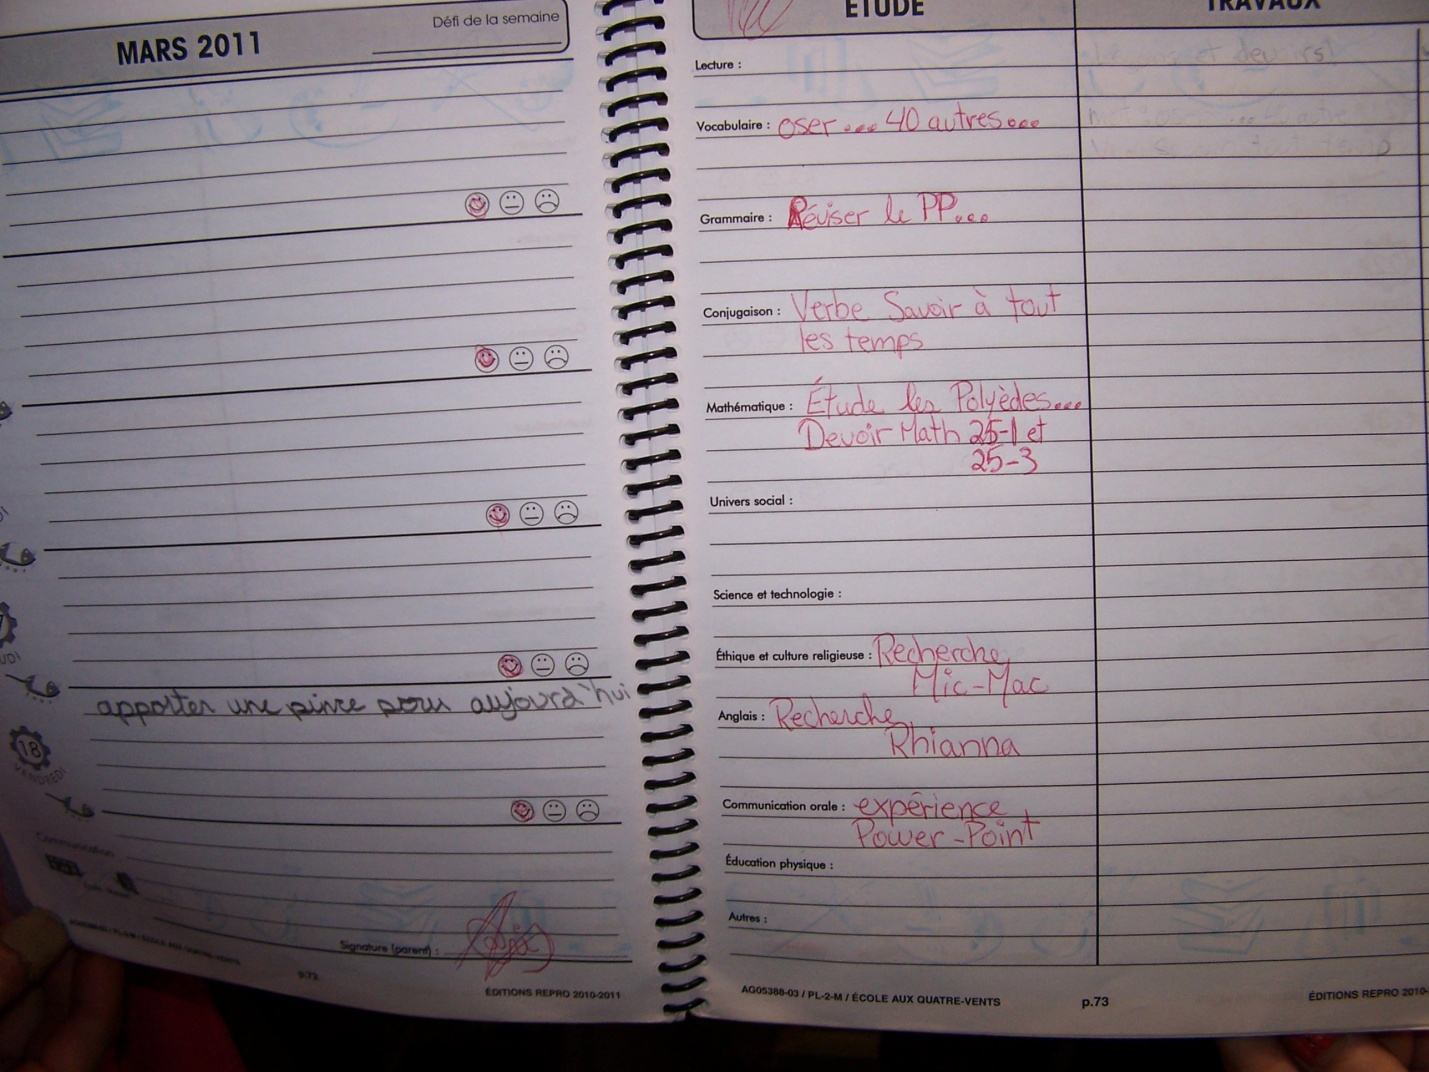 Défi de la semaine
MARS 2011
apporter une pince pour aujourd'hui
18
VENDREDI
Communication
Signature (parent) :
p.72
ÉDITIONS REPRO 2010-2011
ÉTUDE
TRAVAUX
Lecture :
Vocabulaire : oser... 40 autres...
Grammaire : Réviser le PP...
Conjugaison : Verbe Savoir à tout
les temps
Mathématique : Étude les Polyèdes...
Devoir Math 25-1 et
25-3
Univers social :
Science et technologie :
Éthique et culture religieuse : Recherche
Mic-Mac
Anglais : Recherche
Rhianna
Communication orale : expérience
Power-Point
Éducation physique :
Autres :
AG05388-03 / PL-2-M / ÉCOLE AUX QUATRE-VENTS
p.73
ÉDITIONS REPRO 2010-